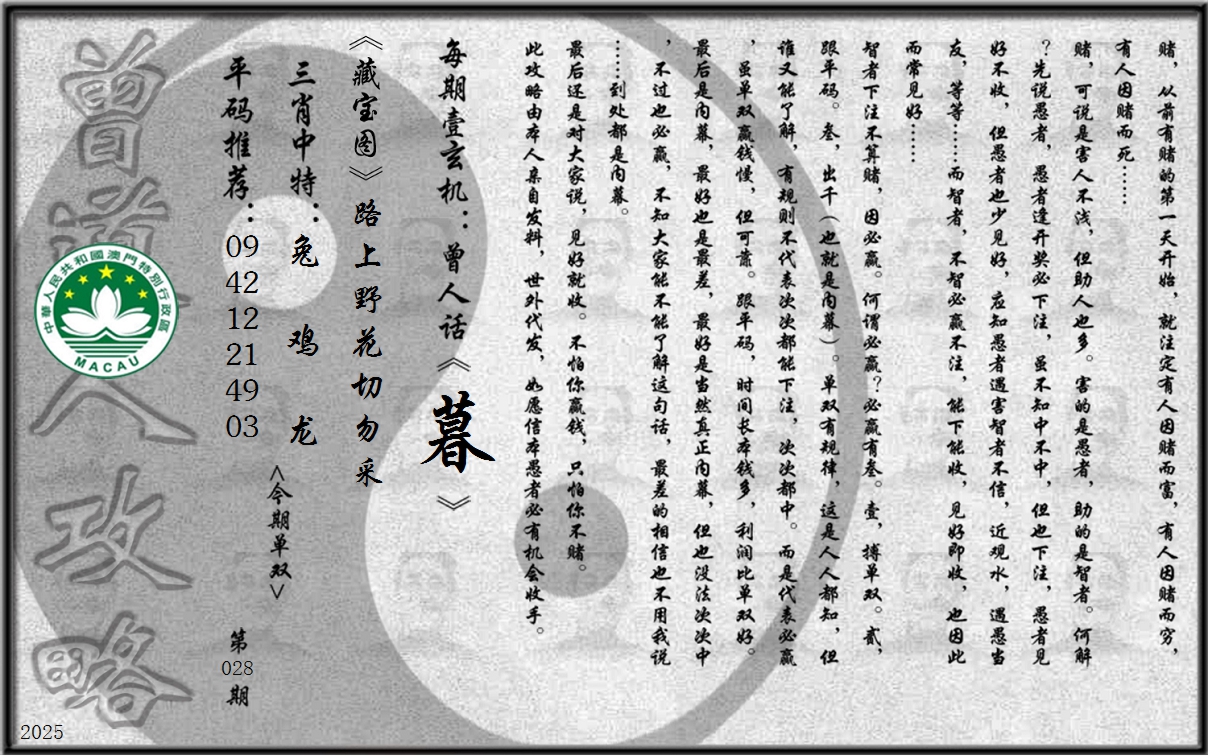 赌，从前有赌的第一天开始，就注定有人因赌而富，有人因赌而穷，
有人因赌而死……
赌，可说是害人不浅，但助人也多。害的是愚者，助的是智者。何解
？先说愚者，愚者逢开奖必下注，虽不知中不中，但也下注，愚者见
好不收，但愚者也少见好，应知愚者遇害智者不信，近观水，遇愚当
友，等等……而智者，不智必赢不注，能下能收，见好即收，也因此
而常见好……
智者下注不算赌，因必赢。何谓必赢？必赢有叁。壹，搏单双。贰，
跟平码。叁，出千（也就是内幕）。单双有规律，这是人人都知，但
谁又能了解，有规则不代表次次都能下注，次次都中。而是代表必赢
，虽单双赢钱慢，但可靠。跟平码，时间长本钱多，利润比单双好。
最后是内幕，最好也是最差，最好是当然真正内幕，但也没法次次中
，不过也必赢，不知大家能不能了解这句话，最差的相信也不用我说
……到处都是内幕。
最后还是对大家说，见好就收。不怕你赢钱，只怕你不赌。
此攻略由本人亲自发料，世外代发，如愿信本愚者必有机会收手。
每期壹玄机：曾人话《暮》
《藏宝图》路上野花切勿采
三肖中特：兔 鸡 龙
<今期单双>
平码推荐：09 42 12 21 49 03
第028期
曾道人攻略
中華人民共和國澳門特別行政區
MACAU
2025